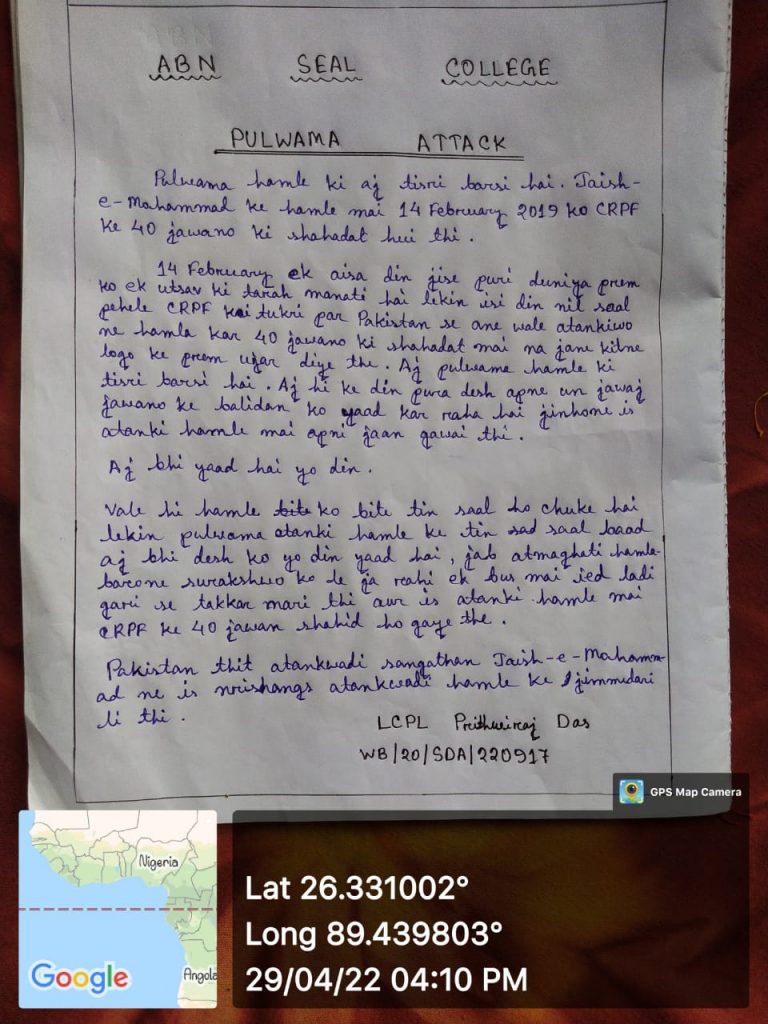 ABN SEAL COLLEGE
PULWAMA ATTACK
Pulwama hamle ki aj tisri barsi hai. Jaish-
e-Mohammad ke hamle mai 14 February 2019 ko CRPF
ke 40 jawano ki shahadat hui thi.
14 February ek aisa din jise puri duniya prem
ko ek utsav ki tarah manati hai lekin isi din nil saal
pehele CRPF kai tukri par Pakistan se ane wale atankiwo
ne hamla kar 40 jawano ki shahadat mai na jane kitne
logo ke prem ujar diye the. Aj pulwama hamle ki
tisri barsi hai. Aj hi ke din pura desh apne un jawaj
jawano ke balidan ko yaad kar raha hai jinhone is
atanki hamle mai apni jaan gawai thi.
Aj bhi yaad hai yo din.
Vale hi hamle bite ko bite tin saal ho chuke hai
lekin pulwama atanki hamle ke tin sad saal baad
aj bhi desh ko yo din yaad hai, jab atmaghati hamla-
barone surakshwo ko le ja rahi ek bus mai ied ladi
gari se takkar mari thi aur is atanki hamle mai
CRPF ke 40 jawan shahid ho gaye the.
Pakistan thit atankwadi sangathan Jaish-e-Mohamm-
ad ne is nrishangs atankwadi hamle ke jimmidari
li thi.
LCPL Prithwiraj Das
WB/20/SDA/220917
GPS Map Camera
Nigeria
Angola
Google
Lat 26.331002°
Long 89.439803°
29/04/22 04:10 PM